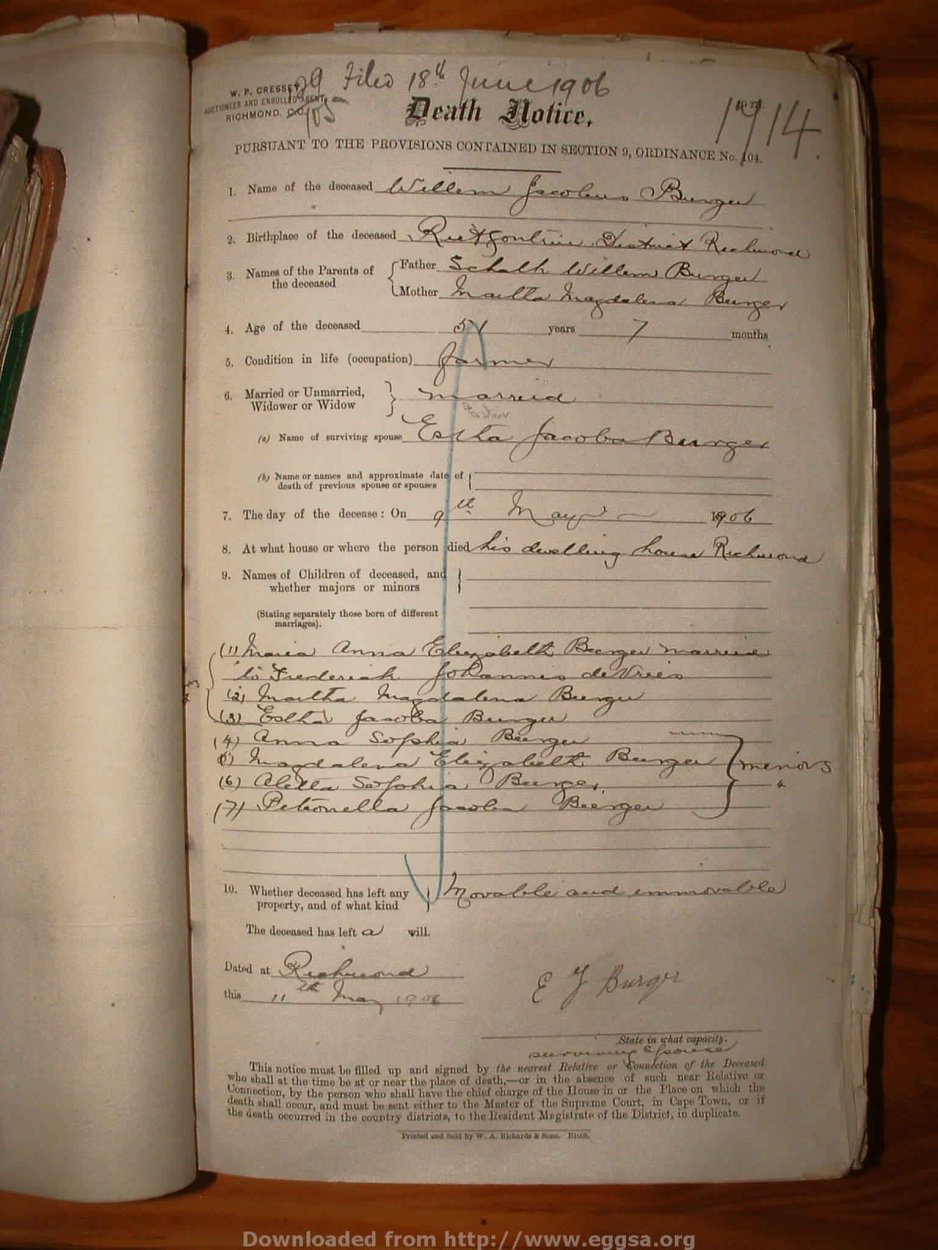 W. P. CRESSEY
AUCTIONEER AND ENROLLED AGENT
RICHMOND, C.C.
Filed 18th June 1906
Death Notice,
1714.
PURSUANT TO THE PROVISIONS CONTAINED IN SECTION 9, ORDINANCE No. 104.
1. Name of the deceased Willem Jacobus Burger
2. Birthplace of the deceased Rietfontein District Richmond
3. Names of the Parents of the deceased { Father Schalk Willem Burger
Mother Martha Magdalena Burger
4. Age of the deceased 51 years 7 months
5. Condition in life (occupation) farmer
6. Married or Unmarried, Widower or Widow } married
(a) Name of surviving spouse Estha Jacoba Burger
(b) Name or names and approximate date of death of previous spouse or spouses
7. The day of the decease: On 9th May 1906
8. At what house or where the person died his dwelling house Richmond
9. Names of Children of deceased, and whether majors or minors
(Stating separately those born of different marriages).
(1) Maria Anna Elizabeth Burger married
to Frederick Johannes de Vries
(2) Martha Magdalena Burger
(3) Estha Jacoba Burger
(4) Anna Sophia Burger
(5) Magdalena Elizabeth Burger } minors
(6) Aletta Sophia Burger "
(7) Petronella Jacoba Burger
10. Whether deceased has left any property, and of what kind } Movable and immovable
The deceased has left a will.
Dated at Richmond
this 11th May 1906
E J Burger
State in what capacity.
surviving Spouse
This notice must be filled up and signed by the nearest Relative or Connection of the Deceased
who shall at the time be at or near the place of death,—or in the absence of such near Relative or
Connection, by the person who shall have the chief charge of the House in or the Place on which the
death shall occur, and must be sent either to the Master of the Supreme Court, in Cape Town, or if
the death occurred in the country districts, to the Resident Magistrate of the District, in duplicate.
Printed and Sold by W. A. Richards & Sons.
Downloaded from http://www.eggsa.org